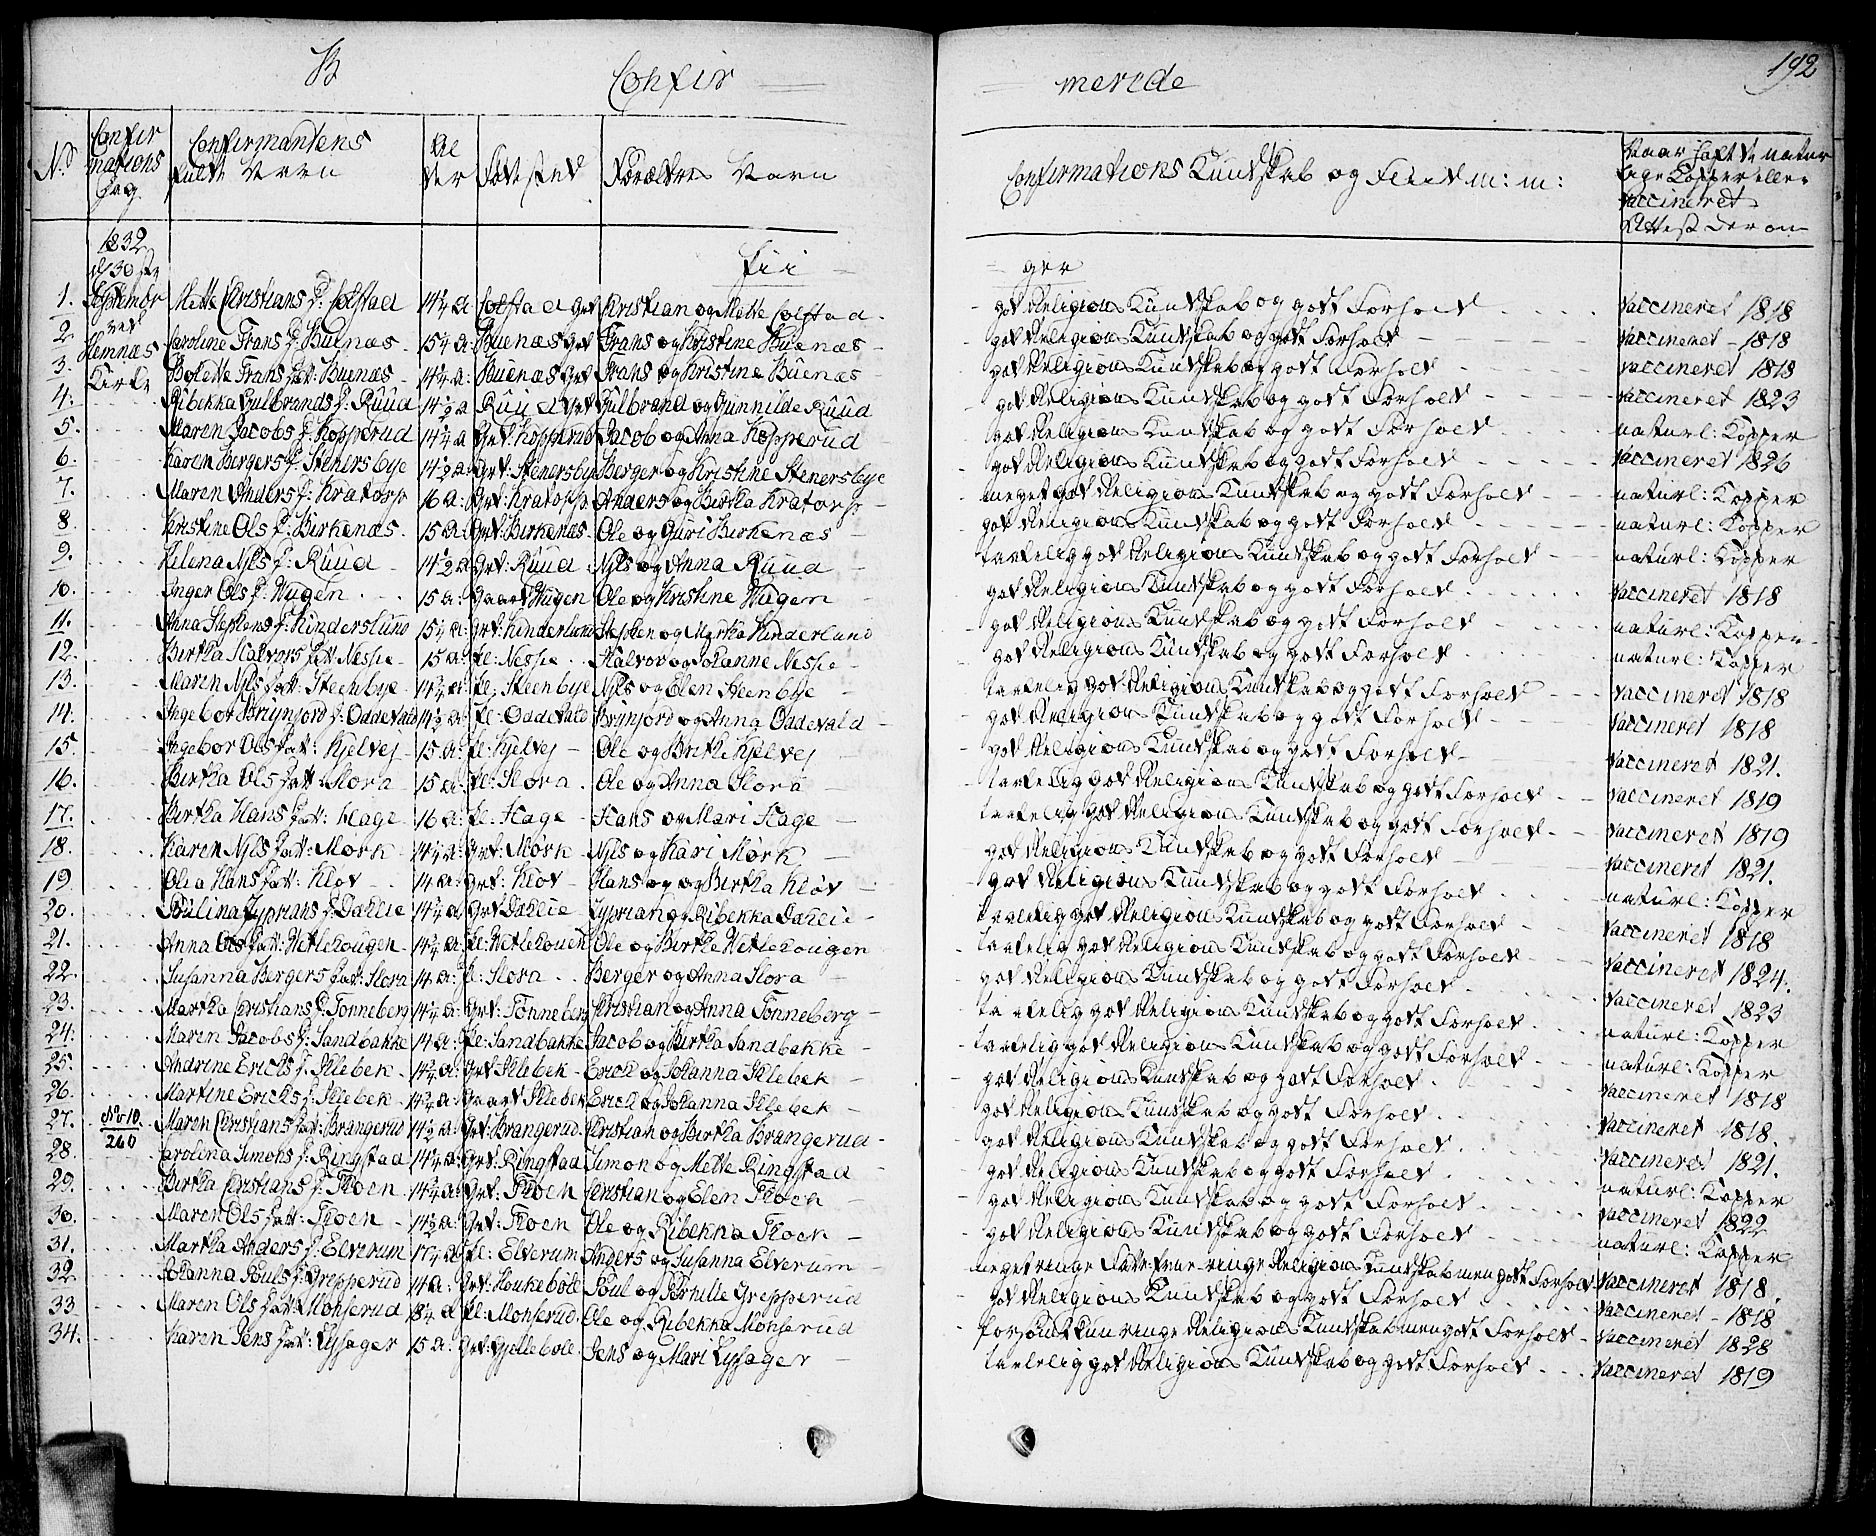 B
Confir merede
192
No
Confir mations Dag
Confirmantens fulde Navn
Al der
Fødested
Forældres Navn
Confirmations Kundskab og Fliid m: m:
Naar haft de natur lige Kopper eller vaccineret Attest derom
1832 d 30 te September ved Hemnæs Kirke
Pii ger
1. Mette Christians D: 14¼ a Grd Christian og Mette god Religions Kundskab og godt Forhold vaccineret 1818
2 Caroline Frans D: Buenæs 15¼ a: Buenæs Grd Frans og Kristine Buenæs god Religions Kundskab og godt Forhold vaccineret - 1818
3. Bolette Frans Dat: Buenæs 14¼ a: Buenæs Grd Frans og Kristine Buenæs god Religions Kundskab og godt Forhold vaccineret 1818
4. Ribekka Gulbrands D: Ruud 14½ a Ruud Grd Gulbrand og Gunnilde Ruud god Religions Kundskab og godt Forhold vaccineret 1823
5. Maren Jacobs D: Kopperud 14¼ a Grd: Kopperud Jacob og Anna Kopperud god Religions Kundskab og godt Forhold naturl: Kopper
6. Karen Bergers D: Stenersbye 14½ a: Grd: Stenersby Berger og Kristine Stenersbye god Religions Kundskab og godt Forhold vaccineret 1826
7. Maren Anders D: Kratorp 16 a: Grd: Anders og Bertha Kratorp meget god Religions Kundskab og godt Forhold naturl: Kopper
8. Kristine Ols D: Birkenæs 15 a: Grd: Birkenæs Ole og Guri Birkenæs god Religions Kundskab og godt Forhold naturl: Kopper
9. Helena Nyls D: Ruud 14½ a Grd: Ruud Nyls og Anna Ruud taalelig god Religions Kundskab og godt Forhold naturl: Kopper
10. Inger Ols D: Hugen 15 a: Gaard Hugen Ole og Kristine Hugen god Religions Kundskab og godt Forhold vaccineret 1818
11. Anna Stephens D: Kinderslund 15¼ a: Grd: Kinderlund Stephen og Martha Kinderlund god Religions Kundskab og godt Forhold naturl: Kopper
12. Bertha Halvors Dat: 15 a: Pl: Halvor og Johanne god Religions Kundskab og godt Forhold naturl: Kopper
13. Maren Nyls Dat: Steenbye 14¼ a: Pl: Steenbye Nyls og Elen Steenbye taalelig god Religions Kundskab og godt Forhold vaccineret 1818
14. Ingebor Brynjord D: Oddevald 14½ a: Pl: Oddevald Brinjord og Anna Oddevald god Religions Kundskab og godt Forhold vaccineret 1818
15. Ingebor Ols Dat: Kjelvej 15 a: Pl: Kjelvej Ole og Bertha Kjelvej god Religions Kundskab og godt Forhold vaccineret 1821.
16. Bertha Ols Dat: Slora 15 a: Pl: Slora Ole og Anna Slora taalelig god Religions Kundskab og godt Forhold vaccineret 1819
17. Bertha Hans Dat: Hage 16 a: Pl: Hage Hans og Mari Hage taalelig god Religions Kundskab og godt Forhold vaccineret 1819
18. Karen Nyls Dat: Mørk 14¼ a: Grd: Mørk Nyls og Kari Mørk god Religions Kundskab og godt Forhold vaccineret 1821.
19 Olea Hans Dat: Kløv 14 a: Grd: Kløv Hans og og Bertha Kløv god Religions Kundskab og godt Forhold naturl: Kopper
20. Pulina Zyprians D: Dahlie 14¼ a Grd Dahlie Zyprian og Ribekka Dahlie taalelig god Religions Kundskab og godt Forhold vaccineret 1818
21. Anna Ols Dat: Hetlehougen 14¼ a: Pl: Ole og Bertha Hetlehougen taalelig god Religions Kundskab og godt Forhold vaccineret 1824.
22 Susanna Bergers Dat: Slora 14 a: Pl: Slora Berger og Anna Slora god Religions Kundskab og godt Forhold vaccineret 1823
23. Martha Christians D: Tonneberg 14½ a: Grd: Tonneberg Christian og Anna Tonneberg taalelig god Religions Kundskab og godt Forhold naturl: Kopper
24: Maren Jacobs D: Sandbakke 14 a: Pl: Sandbakke Jacob og Bertha Sandbakke taalelig god Religions Kundskab og godt Forhold naturl: Kopper
25. Andrine Erichs D: Sklebek 14¼ a: Grd Sklebek Erich og Johanna Sklebek god Religions Kundskab og godt Forhold vaccineret 1818
26. Martine Erichs D: Sklebek 14¼ a: Gaard Sklebek Erich og Johanna Sklebek god Religions Kundskab og godt Forhold vaccineret 1818.
27. No 10. 260 Maren Christians Dat: Brangerud 14½ a: Grd: Brangerud Christian og Bertha Brangerud god Religions Kundskab og godt Forhold vaccineret 1821.
28. Carolina Simons D: Ringstad 14¼ a: Grd: Ringstad Simon og Mette Ringstad god Religions Kundskab og godt Forhold naturl: Kopper
29. Bertha Christians D: Floen 14¼ a: Grd: Floen Christian og Elen Floen god Religions Kundskab og godt Forhold vaccineret 1822
30. Maren Ols Dat: Floen 14½ a: Grd: Floen Ole og Ribekka Floen god Religions Kundskab og godt Forhold naturl: Kopper
31. Martha Anders D: Elverum 17¼ a Pl: Elverum Anders og Susanna Elverum meget ringe Religions Kundskab men godt Forhold vaccineret 1818.
32 Johanna Pouls D: Grepperud 14 a: Grd: Haukebøle Poul og Pernille Grepperud god Religions Kundskab og godt Forhold vaccineret - 1818
33 Maren Ols Dat: Monserud 18¼ a Pl: Monserud Ole og Ribekka Monserud kun ringe Religions Kundskab men godt Forhold vaccineret 1828
34. Karen Jens Dat: Lysager 15 a: Grd: Gjellebøle Jens og Mari Lysager taalelig god Religions Kundskab og godt Forhold vaccineret 1819